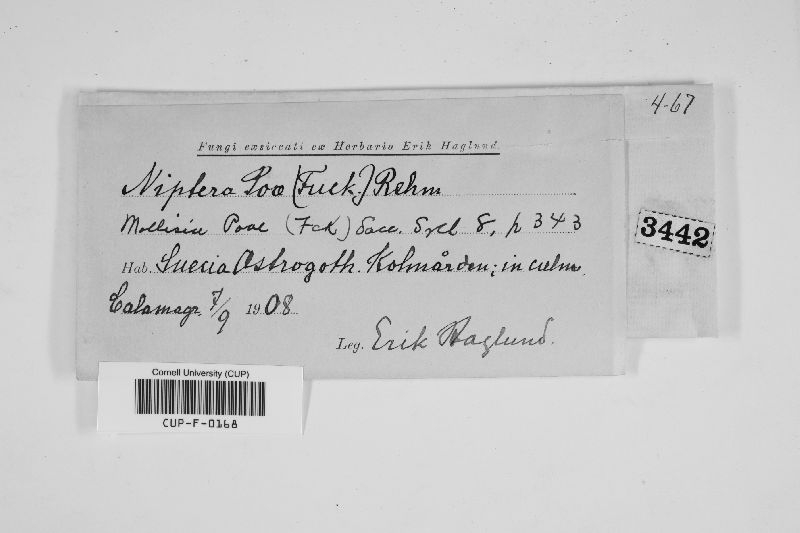 4-67
Fungi exsiccati ex Herbario Erik Haglund.
Niptera Poæ (Fuck.) Rehm
Mollisia Poae (Fck) Sacc. Syll 8, p 343
Hab. Suecia Ostrogoth. Kolmården; in culm.
Calamagr. 7/9 1908
Leg. Erik Haglund.
3442
Cornell University (CUP)
CUP-F-0168